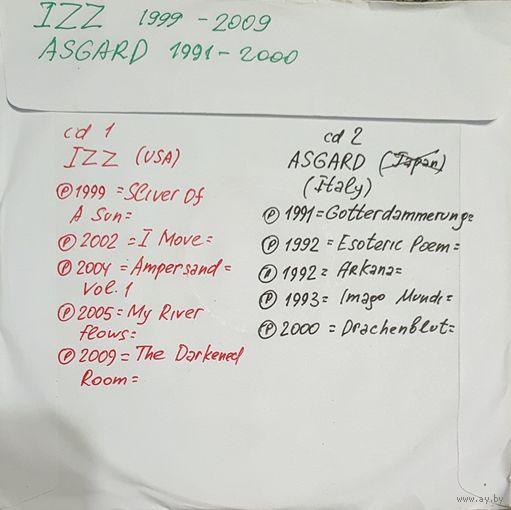 IZZ 1999 - 2009
ASGARD 1991 - 2000
cd 1
IZZ (USA)
Ⓟ 1999 = Sliver Of
A Sun =
Ⓟ 2002 = I Move =
Ⓟ 2004 = Ampersand =
Vol. 1
Ⓟ 2005 = My River
flows =
Ⓟ 2009 = The Darkened
Room =
cd 2
ASGARD (Japan)
(Italy)
Ⓟ 1991 = Gotterdammerung =
Ⓟ 1992 = Esoteric Poem =
Ⓟ 1992 = Arkana =
Ⓟ 1993 = Imago Mundi =
Ⓟ 2000 = Drachenblut =
www.ay.by